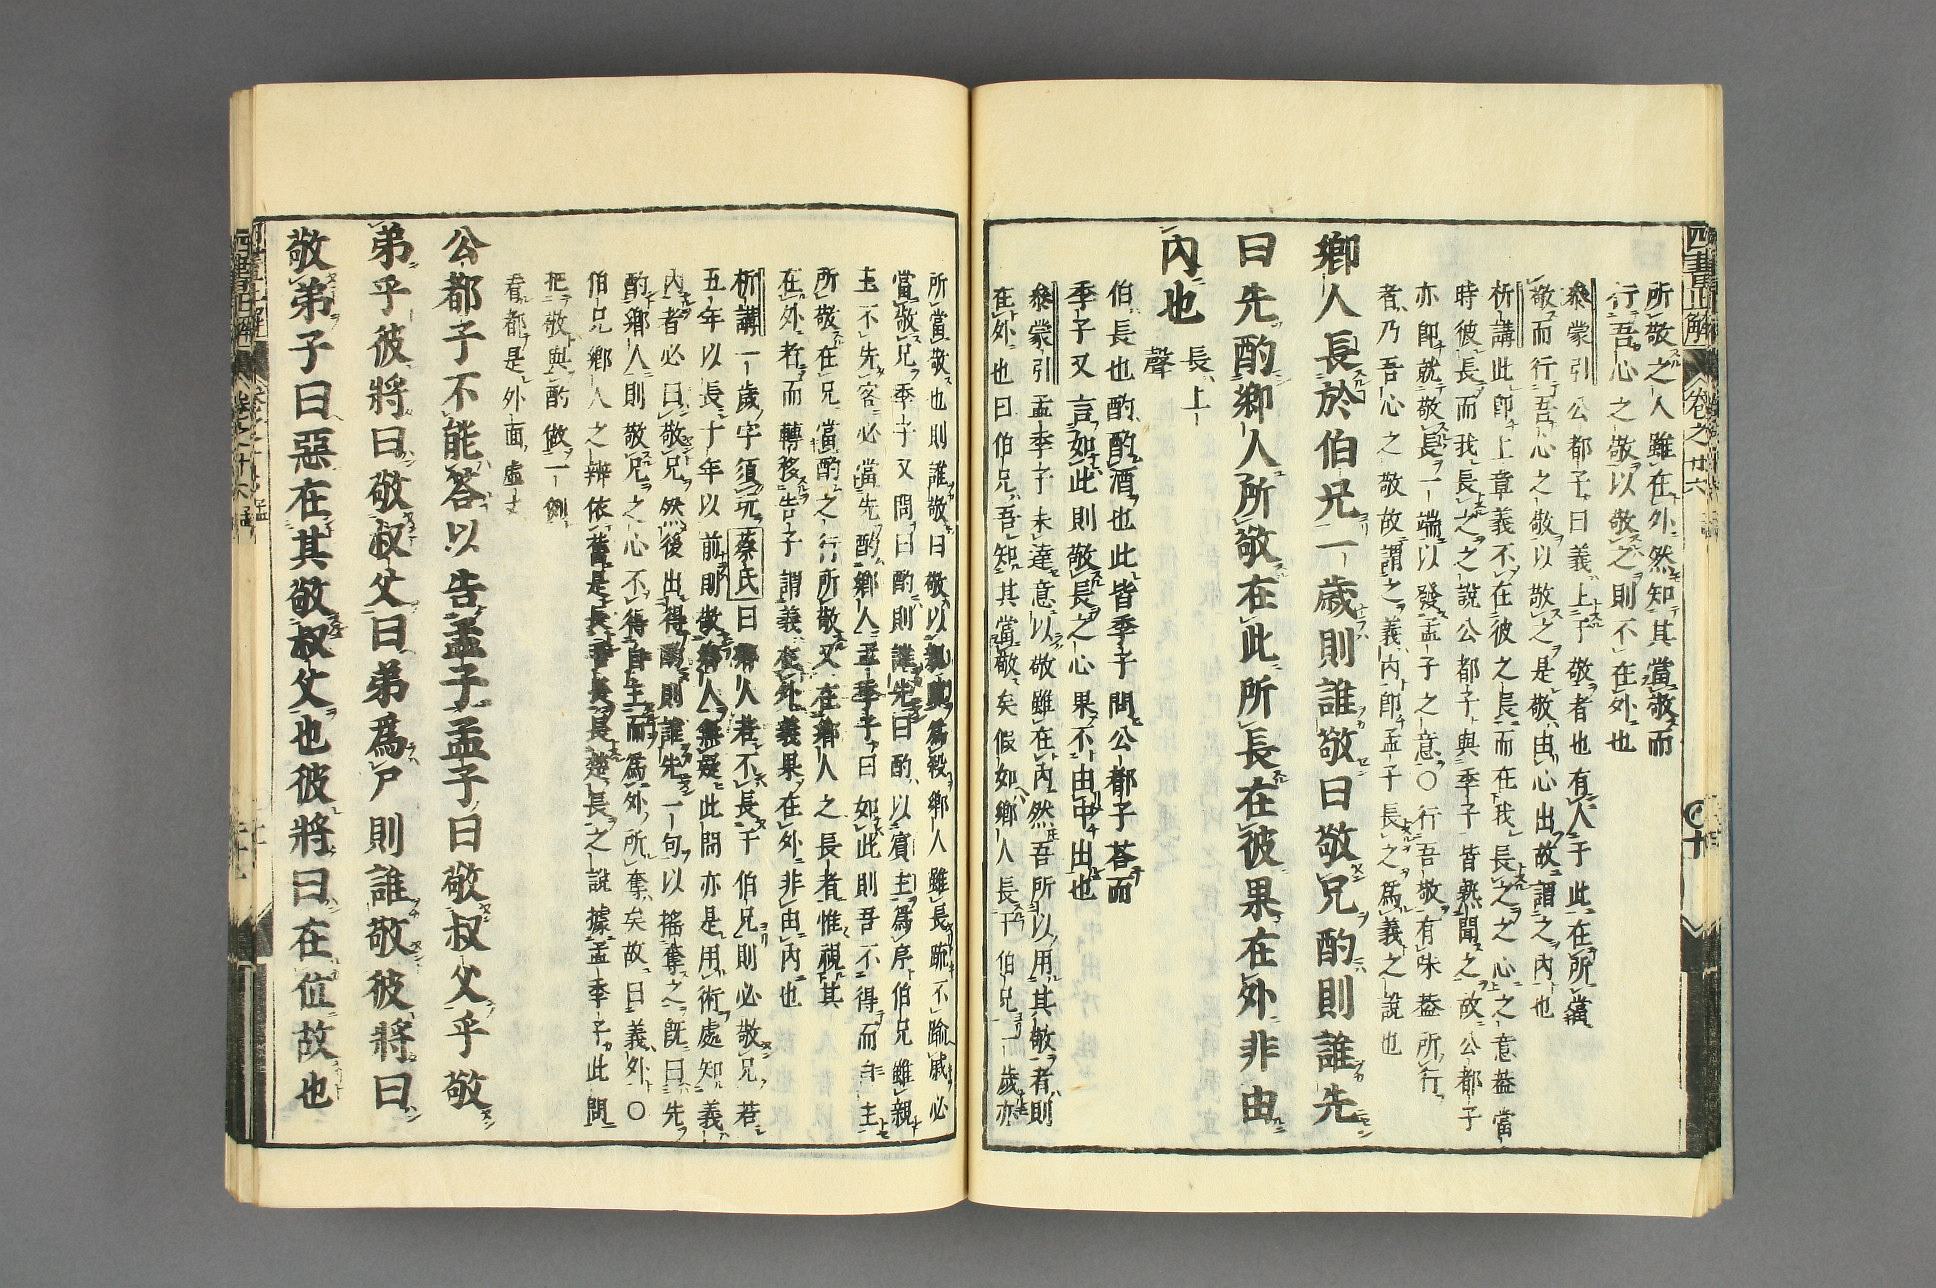 四書正解 卷之廿六
所敬之人雖在外然知其當敬而
行吾心之敬以敬之則不在外也
叅蒙引公都子曰義上于敬者也有人于此在所當
敬而行吾心之敬以敬之是敬由心出故謂之內也
析講此卽上章義不在彼之長而在我長之之心之意葢當
時彼長而我長之之說公都子與季子皆熟聞之故公都子
亦卽就敬長一端以發孟子之意〇行吾敬有味葢所行
者乃吾心之敬故謂之義內卽孟子長之爲義之說也
鄉人長於伯兄一歲則誰敬曰敬兄酌則誰先
曰先酌鄉人所敬在此所長在彼果在外非由
內也
長上
聲
伯長也酌酌酒也此皆季子問公都子荅而
季子又言如此則敬長之心果不由中出也
叅蒙引孟季子未達意以敬雖在內然吾所以用其敬者則
在外也曰伯兄吾知其當敬矣假如鄉人長于伯兄一歲亦
所當敬也則誰敬曰敬以親爲殺鄉人雖長疏不踰戚必
當敬兄季子又問曰酌則誰先曰酌以賓主爲序伯兄雖親
主不先客必當先酌鄉人孟季子曰如此則吾不得而自主
所敬在兄當酌之行所敬又在鄉人之長者惟視其
在外者而轉移告子謂義在外義果在外非由內也
析講一歲字須玩蔡氏曰鄉人若不長于伯兄則必敬兄若
五年以長十年以前則敬鄉人無疑此問亦是用術處知義
內者必曰敬兄然後出得酌則誰先一句以搖奪之旣曰先
酌鄉人則敬兄之心不得自主而爲外所奪矣故曰義外〇
伯兄鄉人之辨依舊是長者義長楚長之說據孟季子此問
把敬與酌做一側
看都是外面虛文
公都子不能答以告孟子孟子曰敬叔父乎敬
弟乎彼將曰敬叔父曰弟爲尸則誰敬彼將曰
敬弟子曰惡在其敬叔父也彼將曰在位故也